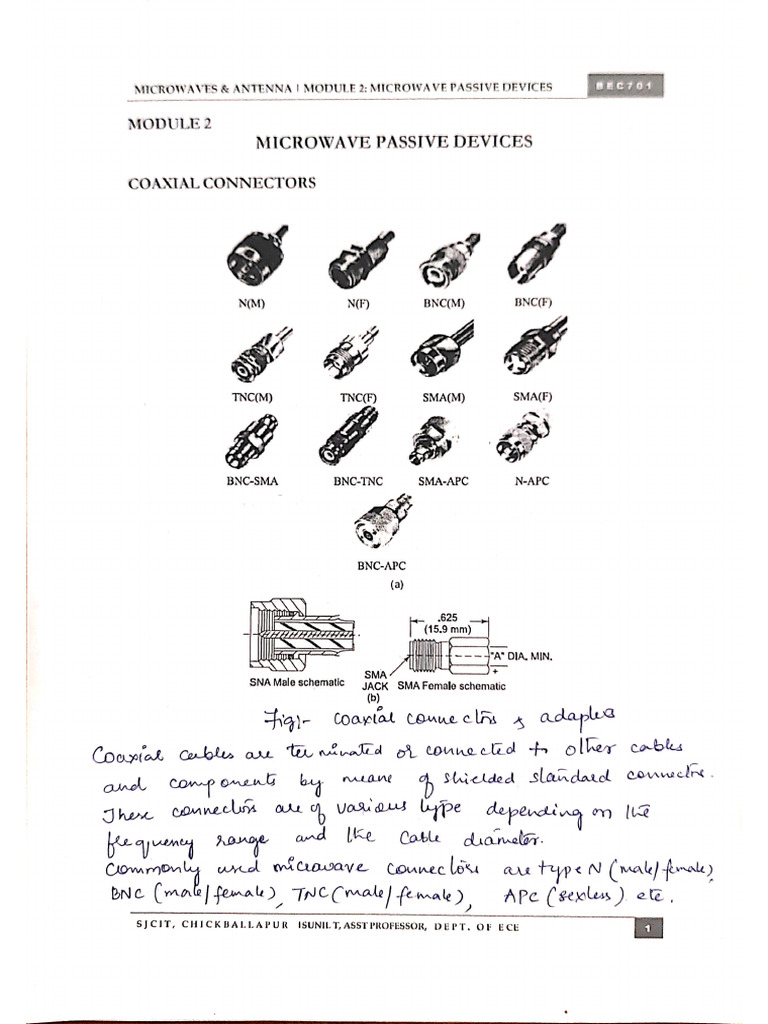 MICROWAVES & ANTENNA | MODULE 2: MICROWAVE PASSIVE DEVICES
BEC701
MODULE 2
MICROWAVE PASSIVE DEVICES
COAXIAL CONNECTORS
N(M) N(F) BNC(M) BNC(F)
TNC(M) TNC(F) SMA(M) SMA(F)
BNC-SMA BNC-TNC SMA-APC N-APC
BNC-APC
(a)
.625
(15.9 mm)
"A" DIA. MIN.
SNA Male schematic
SMA
JACK
SMA Female schematic
(b)
Fig:- coaxial connectors & adapters
Coaxial cables are terminated or connected to other cables
and components by means of shielded standard connectors.
These connectors are of various type depending on the
frequency range and the cable diameter.
Commonly used microwave connectors are type N (male/female),
BNC (male/female), TNC (male/female), APC (sexless) etc.
SJCIT, CHICKBALLAPUR |SUNIL T, ASST PROFESSOR, DEPT. OF ECE
1